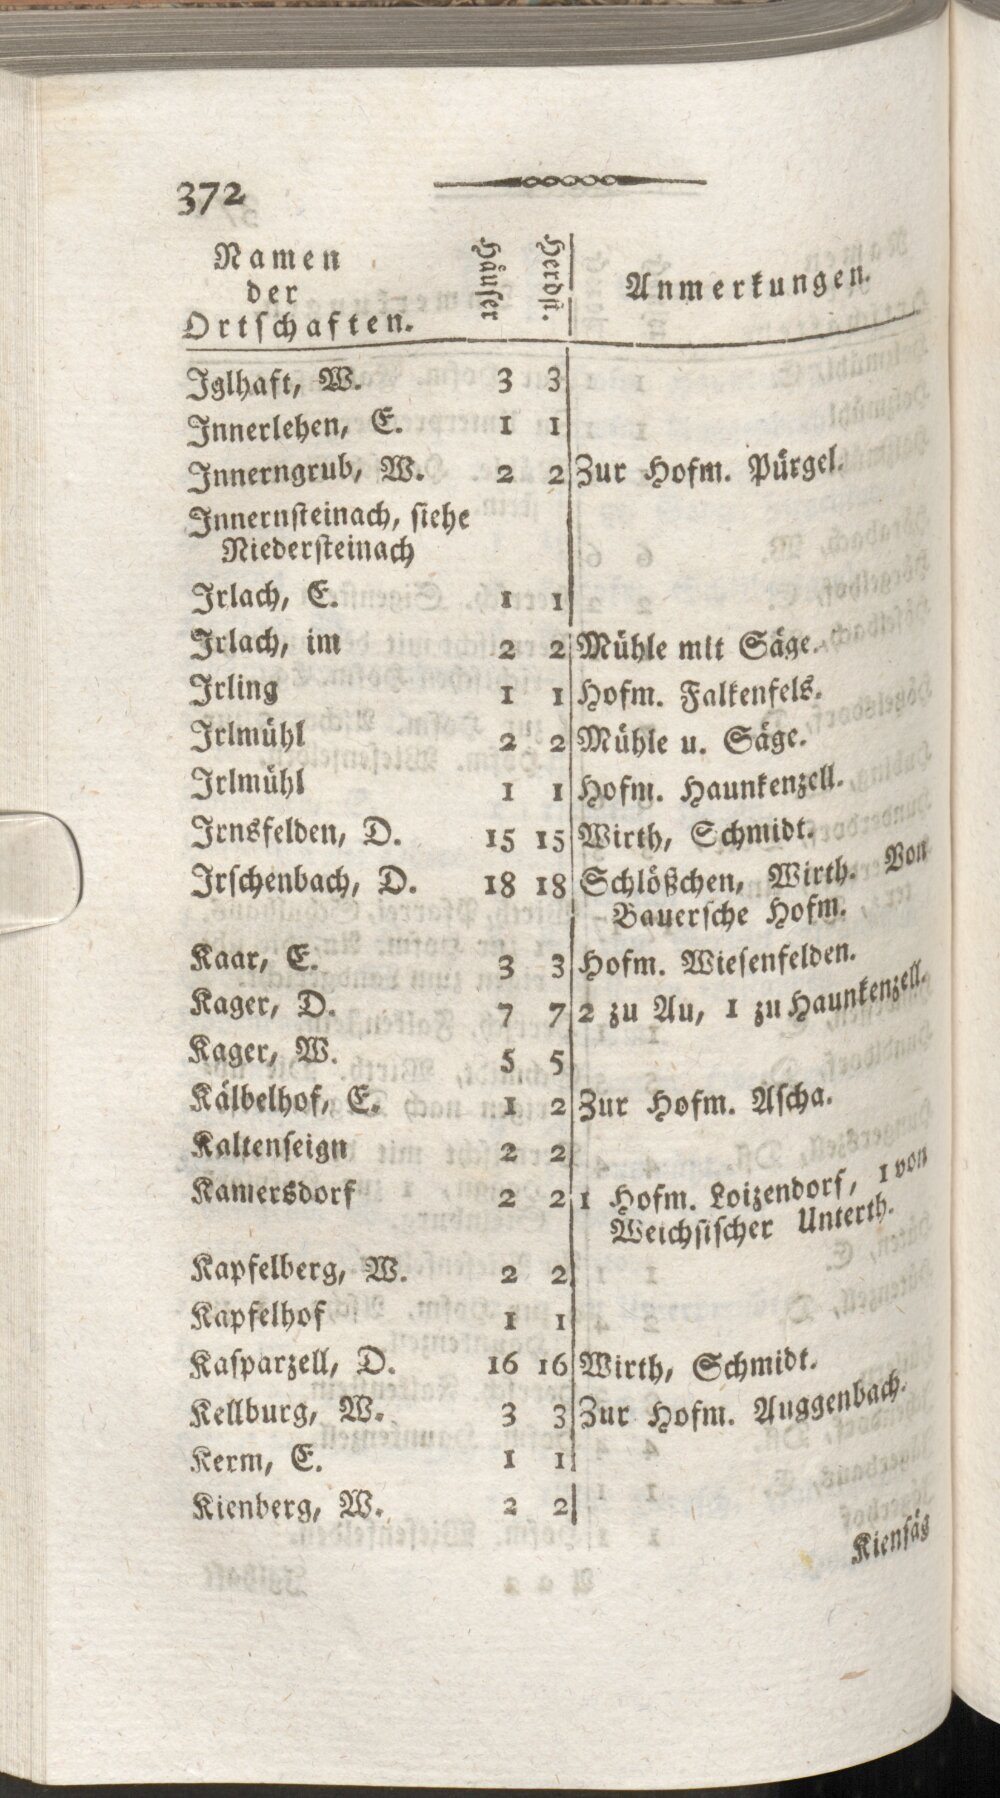 372
Namen
der
Ortschaften.
Häuser
Herdst.
Anmerkungen.
Iglhaft, W. 3 3
Innerlehen, E. 1 1
Innerngrub, W. 2 2 Zur Hofm. Pürgel.
Innernsteinach, siehe
Niedersteinach
Irlach, E. 1 1
Irlach, im 2 2 Mühle mit Säge.
Irling 1 1 Hofm. Falkenfels.
Irlmühl 2 2 Mühle u. Säge.
Irlmühl 1 1 Hofm. Haunkenzell.
Irnsfelden, D. 15 15 Wirth, Schmidt.
Irschenbach, D. 18 18 Schlößchen, Wirth. Von
Bauersche Hofm.
Kaar, E. 3 3 Hofm. Wiesenfelden.
Kager, D. 7 7 2 zu Au, 1 zu Haunkenzell.
Kager, W. 5 5
Kälbelhof, E. 1 2 Zur Hofm. Ascha.
Kaltenseign 2 2
Kamersdorf 2 2 1 Hofm. Loizendorf, 1 von
Weichsischer Unterth.
Kapfelberg, W. 2 2
Kapfelhof 1 1
Kasparzell, D. 16 16 Wirth, Schmidt.
Kellburg, W. 3 3 Zur Hofm. Auggenbach.
Kerm, E. 1 1
Kienberg, W. 2 2
Kiensäg